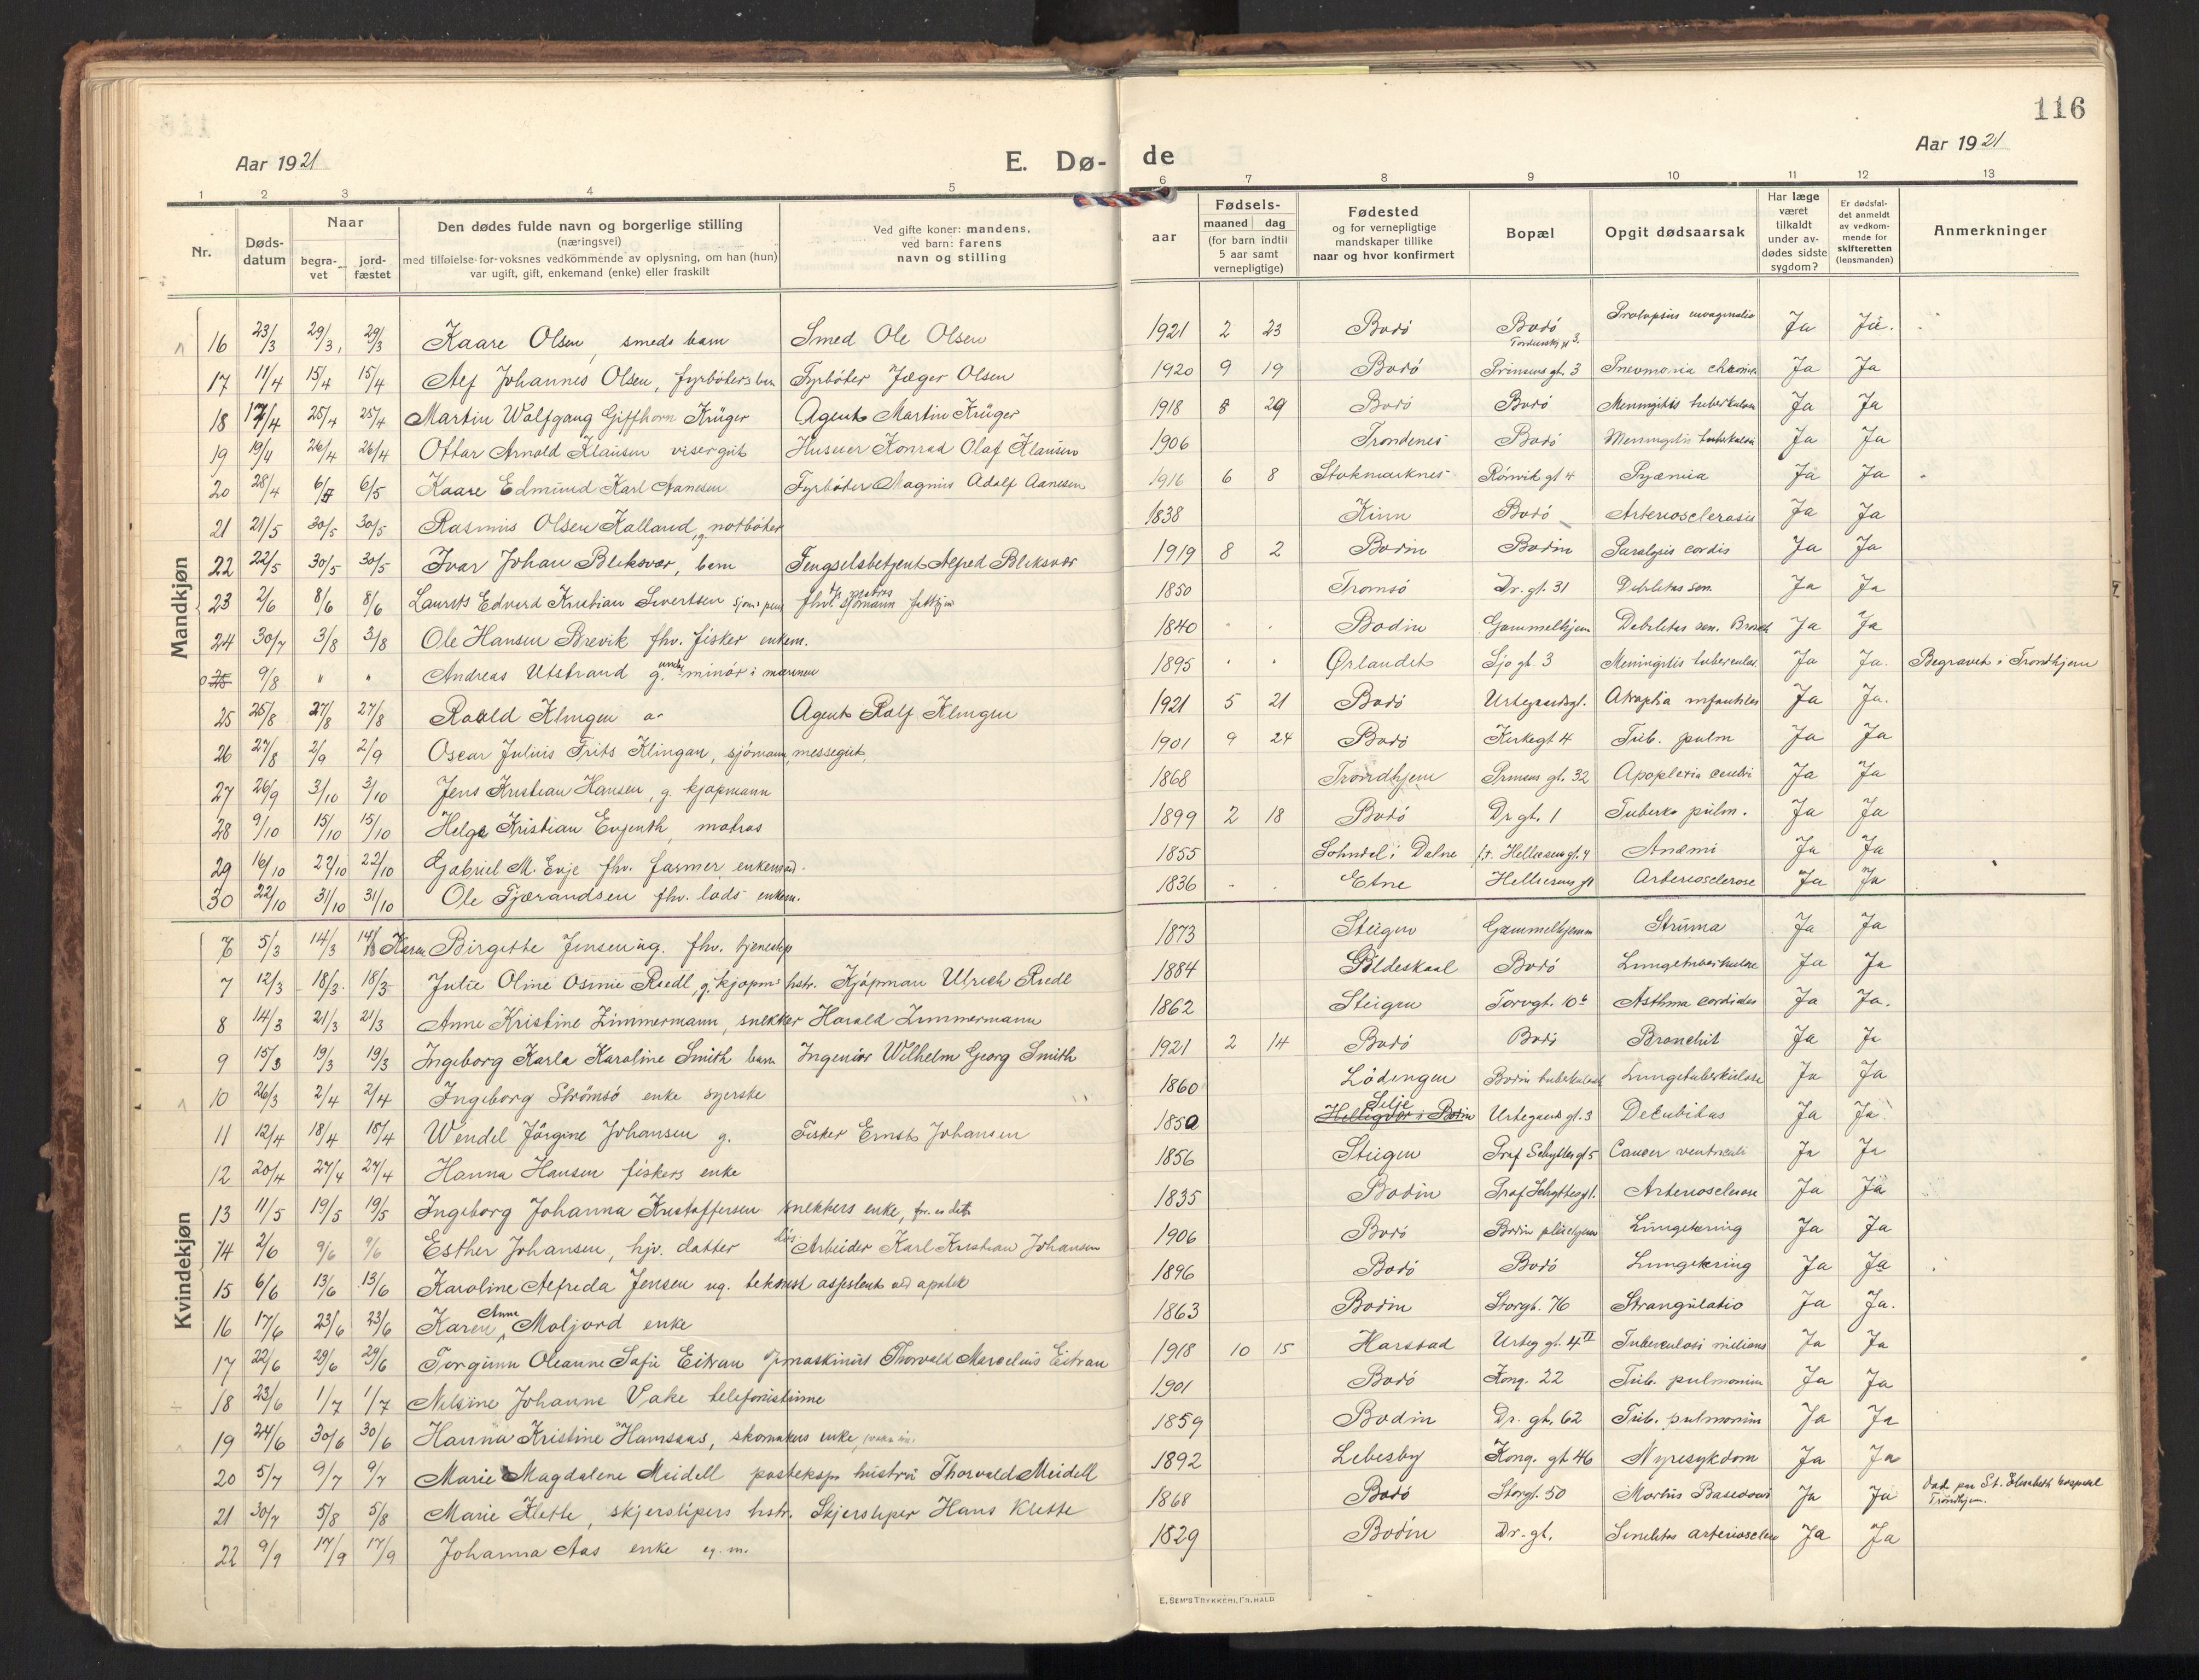 116
Aar 1921 E. Dø- de Aar 1921
1 2 3 4 5 6 7 8 9 10 11 12 13
Nr. Døds-datum Naar begra-vet jord-fæstet Den dødes fulde navn og borgerlige stilling (næringsvei) med tilføielse for voksnes vedkommende av oplysning, om han (hun) var ugift, gift, enkemand (enke) eller fraskilt Ved gifte koner: mandens, ved barn: farens navn og stilling aar Fødsels- maaned dag (for barn indtil 5 aar samt vernepligtige) Fødested og for vernepligtige mandskaper tillike naar og hvor konfirmert Bopæl Opgit dødsaarsak Har læge været tilkaldt under av-dødes sidste sygdom? Er dødsfal-det anmeldt av vedkom-mende for skifteretten (lensmanden) Anmerkninger
Mandkjøn
16 23/3 29/3 29/3 Kaare Olsen, smeds barn Smed Ole Olsen 1921 2 23 Bodö Bodö Ja Ja.
17 11/4 15/4 15/4 Alf Johannes Olsen, fyrböters barn Fyrböter Jæger Olsen 1920 9 19 Bodö Prinsens gt. 3 Pneumonia Ja Ja
18 17/4 25/4 25/4 Martin Wolfgang Giffhorn Krüger Agent Martin Krüger 1918 8 29 Bodö Bodö Meningitis tuberkulosa Ja Ja
19 19/4 26/4 26/4 Ottar Arnold Klausen visergut Konrad Olaf Klausen 1906 Trondenes Bodö Meningitis tuberkulosa Ja Ja
20 28/4 6/5 6/5 Kaare Edmund Karl Aanesen Fyrböter Magnus Adolf Aanesen 1916 6 8 Stokmarknes Rönvik gt 4 Pyæmia Ja Ja
21 21/5 30/5 30/5 Rasmus Olsen Kalland, g. notböter 1838 Kinn Bodö Arteriosclerosis Ja Ja
22 22/5 30/5 30/5 Ivar Johan Bliksvær, barn Fengselsbetjent Alfred Bliksvær 1919 8 2 Bodin Bodin Paralysis cordis Ja Ja
23 2/6 8/6 8/6 Laurits Edvard Kristian Sivertsen 1850 Tromsö Dr. gt. 31 Debilitas sen. Ja Ja
24 30/7 3/8 3/8 Ole Hansen Brevik fhv. fisker enkem. 1840 Bodin Gammelhjem Debilitas sen. Bronch Ja Ja
25 9/8 " " Andreas Utstrand g. underminör i marinen 1895 Ørlandet Sjö gt. 3 Meningitis tuberculos. Ja Ja. Begravet i Trondhjem
25 25/8 27/8 27/8 Roald Klingen Agent Rolf Klingen 1921 5 21 Bodö Urtegaardsgt. Atrophia infantiles Ja Ja.
26 27/8 2/9 2/9 Oscar Julius Frits Klingan, sjömann, messegut, 1901 9 24 Bodö Kirkegt 4 Tub. pulm Ja Ja
27 26/9 3/10 3/10 Jens Kristian Hansen, g. kjøpmann 1868 Trondhjem Prinsens gt. 32 Apoplexia cerebri Ja Ja
28 9/10 15/10 15/10 Helge Kristian Evjenth, matros 1899 2 18 Bodö Dr gt. 1 Tuberk. pulm. Ja Ja
29 16/10 22/10 22/10 Gabriel M. Evje fhv. farmer, enkemand. 1855 Sohndal i Dalne Hellesens gt. 4 Anæmi Ja Ja
30 22/10 31/10 31/10 Ole Tjærandsen fhv. lods enkem. 1836 Etne Hellesens gt Arteriosclerose Ja Ja
Kvindekjøn
6 5/3 14/3 14/3 Karen Birgitte Jensen ug. fhv. tjenestep 1873 Steigen Gammelhjemm Struma Ja Ja
7 12/3 18/3 18/3 Julie Oline Osmie Riedl, g. kjøpm. hstr. Kjøpman Ulrich Riedl 1884 Gildeskaal Bodö Lungetuberkulose Ja Ja
8 14/3 21/3 21/3 Anne Kristine Zimmermann, snekker Harald Zimmermann 1862 Steigen Torvgt. 10b Asthma cordiales Ja Ja.
9 15/3 19/3 19/3 Ingeborg Karla Karoline Smith barn Ingeniör Wilhelm Georg Smith 1921 2 14 Bodö Bodö Bronchit Ja Ja
10 26/3 2/4 2/4 Ingeborg Strömsö enke syerske 1860 Lödingen Bodin Lungetuberkulose Ja Ja
11 12/4 18/4 18/4 Wendel Jörgine Johansen g. Fisker Ernst Johansen 1850 Helligvær i Bodin Selje Urtegaards gt. 3 Decubitus Ja Ja
12 20/4 27/4 27/4 Hanna Hansen fiskers enke 1856 Steigen Prof Schyttes gt 5 Cancer ventriculi Ja Ja
13 11/5 19/5 19/5 Ingeborg Johanna Kristoffersen snekkers enke, 1835 Bodin Prof Schyttes gt. Arteriosclerose Ja Ja
14 2/6 9/6 9/6 Esther Johansen, hjv. datter Arbeider Karl Kristian Johansen 1906 Bodö Bodin pleiehjem Lungetæring Ja Ja
15 6/6 13/6 13/6 Karoline Alfreda Jensen ug. teknisk assistent ved apotek 1896 Bodö Bodö Lungetæring Ja Ja
16 17/6 23/6 23/6 Karen Anna Moljord enke 1863 Bodin Storgt. 76 Strangulatio Ja Ja.
17 22/6 29/6 29/6 Torgunn Oleanne Sofie Eitran maskinist Thorvald Marcelius Eitran 1918 10 15 Harstad Urteg gt. 4 II Tuberculosi miliaris Ja Ja
18 23/6 1/7 1/7 Nilsine Johanne Vake telefonistinne 1901 Bodö Kong. 22 Tub. pulmonum Ja Ja
19 24/6 30/6 30/6 Hanna Kristine Hamsaas, skomakers enke 1859 Bodin Dr. gt. 62 Tub. pulmonum Ja Ja
20 5/7 9/7 9/7 Marie Magdalene Meidell posteksp. hustru Thorvald Meidell 1892 Lebesby Kong. gt 46 Nyresykdom Ja Ja
21 30/7 5/8 5/8 Marie Klette, skjerslipers hstr. Skjersliper Hans Klette 1868 Bodö Storgt. 50 Morbus Basedowi Ja Ja Död paa St. Elisabeth hospital Trondhjem.
22 9/9 17/9 17/9 Johanna Aas enke 1829 Bodin Dr. gt. Senilitas arterioscler Ja Ja
E. SEM'S TRYKKERI, FR.HALD